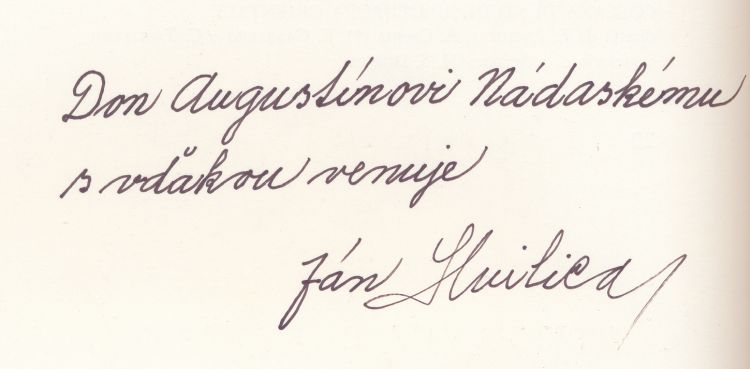 Don Augustínovi Nádaskému
s vďakou venuje
Ján Hvilica